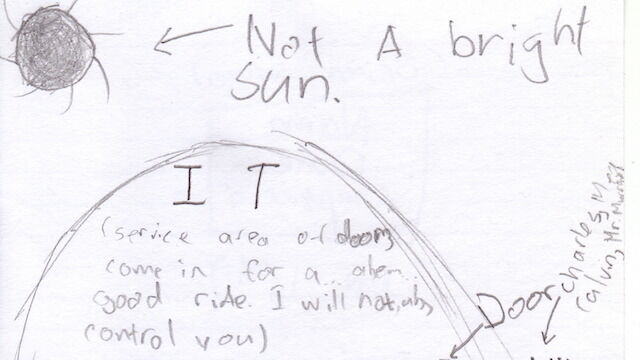 Not A bright
sun.
IT
(service area of doom,
come in for a... ahem...
good ride. I will not, ah,
control you)
Door
Charles,
Calvin, Mr. Murry